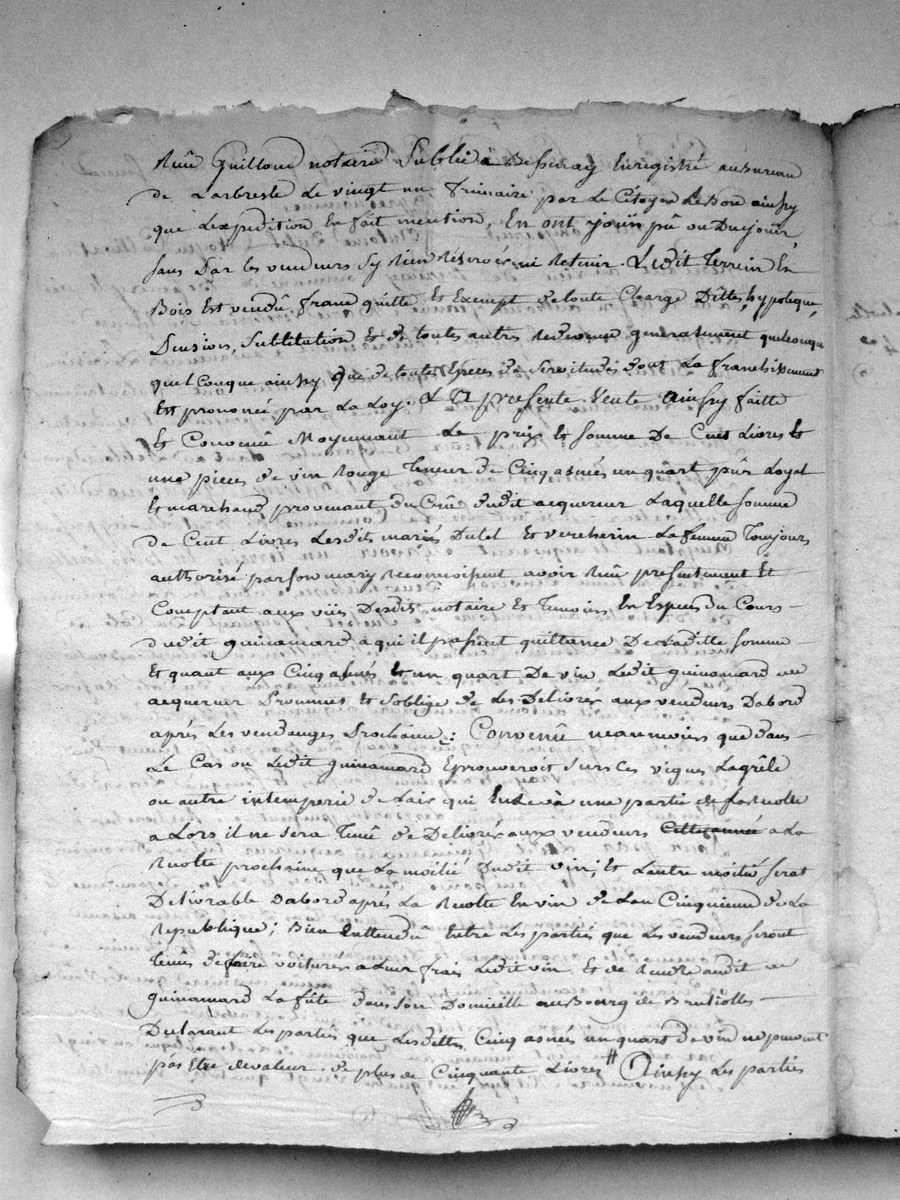 Guilloud notaire Public à Bessenay Enregistré au bureau
de Larbresle Le vingt un frimaire par Le Citoyen ainsy
que Lexpédition En fait mention, En ont jouïs pû ou Du jouir
sans Par les vendeurs sy Rien Réservér ni Retenir. Ledit Terrein En
Bois Est vendû franc quitte Et Exempt de toute Charge Dettes, hypoteque,
Pensions, Substitution Et de toutes autres Redevance generalement quelconque
quelConque ainsy que de toutes Especes de Servitudes dont La franchissement
Est prononcé par La Loy. La presente Vente ainsy faitte
Et Convenue Moyennant Le prix Et Somme De Cent Livres Et
une pieces de vin Rouge Teneur de Cinq asnées un quart pûr Loyal
Et marchand provenant du Crû dudit acquereur Laquelle somme
de Cent Livres Lesdits mariés Dutel Et vercherin La femme Toujours
authorisé par son mary Reconnoissent avoir Reçû presentement Et
Comptant aux vües Desdits notaire Et Temoins En Especes du Cours
dudit guinamard à qui il passent quittance De Laditte somme
Et quant aux Cinq asnées Et un quart De vin Ledit guinamard
acquereur Promet Et soblige de Les Delivrer aux vendeurs Dabord
après Les vendanges Prochaine; Convenû neanmoins que dans
Le Cas ou Ledit guinamard Eprouveroit sur ses vignes La grêle
ou autre intemperie de Lair qui une partie de sa Recolte
a Lors il ne sera Tenû de Delivrer aux vendeurs a La
Recolte prochaine que La moitié Dudit vin; Et Lautre moitié serat
Delivrable Dabord après La Recolte En vin de Lan Cinquieme de La
Republique; Bien Entendû Entre Les parties que Les vendeurs seront
tenûs de faire voiturer a Leur frais Ledit vin Et de Rendre audit
guinamard La fûte dans son Domicille au Bourg de Brullioles
Declarant Les parties que Lesdittes Cinq asnées un quart de vin ne peuvent
pas Etre de valeur de plus de Cinquante Livres // Ainsy Les parties